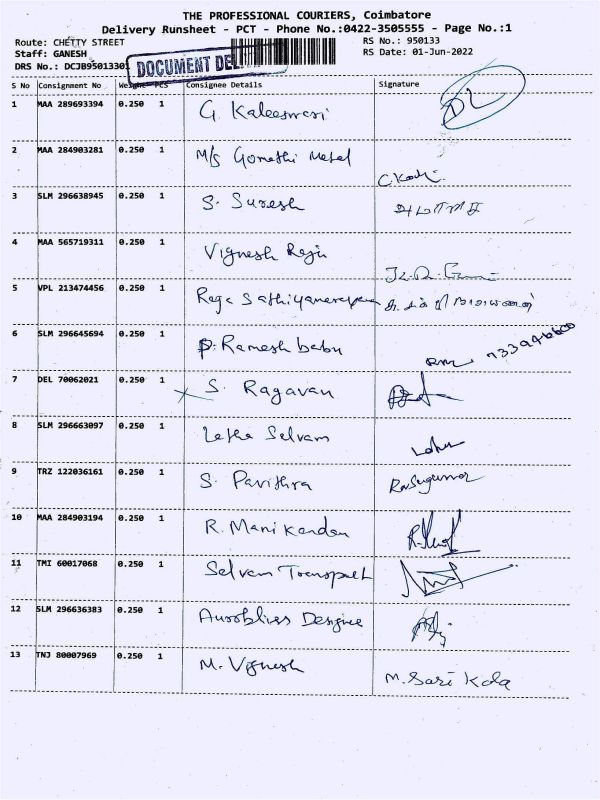 THE PROFESSIONAL COURIERS, Coimbatore
Delivery Runsheet - PCT - Phone No.:0422-3505555 - Page No.:1
Route: CHETTY STREET RS No.: 950133
Staff: GANESH RS Date: 01-Jun-2022
DRS No.: DCJB95013301 DOCUMENT
S No Consignment No Weight PCS Consignee Details Signature
1 MAA 289693394 0.250 1 G. Kaleeswari DL
2 MAA 284903281 0.250 1 M/s Gomathi Metal
3 SLM 296638945 0.250 1 S. Suresh
4 MAA 565719311 0.250 1 Vignesh Raja
5 VPL 213474456 0.250 1 Raja Sathiyanarayana
6 SLM 296645694 0.250 1 P. Ramesh babu
7 DEL 70062021 0.250 1 S. Ragavan
8 SLM 296663097 0.250 1 Latha Selvam
9 TRZ 122036161 0.250 1 S. Pavithra
10 MAA 284903194 0.250 1 R. Manikandan
11 TMI 60017068 0.250 1 Selvam Transport
12 SLM 296636383 0.250 1
13 TNJ 80007969 0.250 1 M. Vignesh M. Sasi Kala